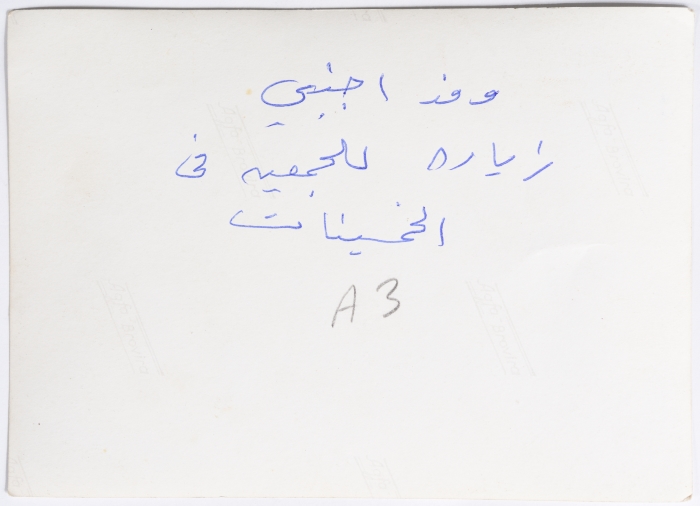 وفد اجنبي
زياره للجمعيه في
الخمسينات
A3